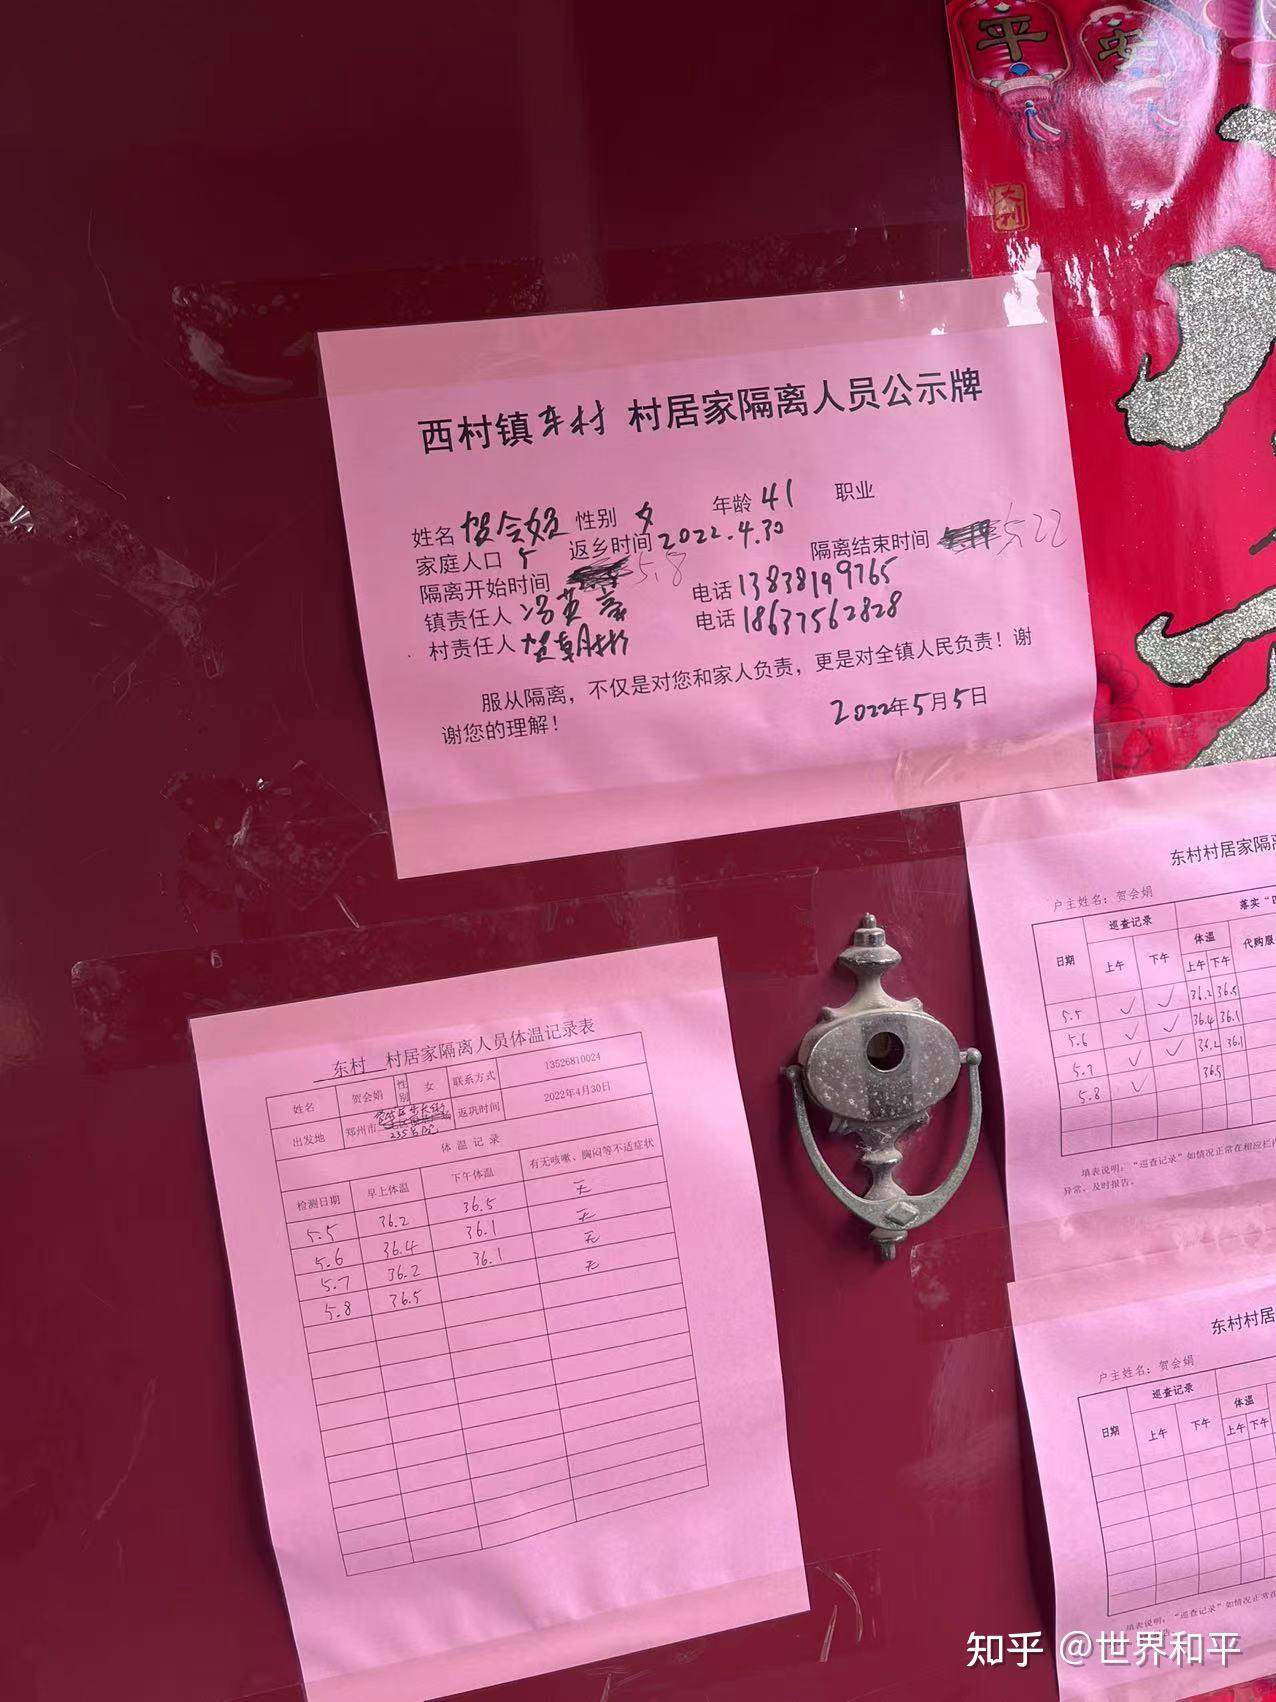 平 安
大利
西村镇东村 村居家隔离人员公示牌
姓名 贺会娟 性别 女 年龄 41 职业
家庭人口 5 返乡时间 2022.4.30
隔离开始时间 5.8 隔离结束时间 5.22
镇责任人 电话 13838199765
村责任人 贺朝彬 电话 18637562828
服从隔离，不仅是对您和家人负责，更是对全镇人民负责！谢
谢您的理解！
2022年5月5日
东村 村居家隔离人员体温记录表
姓名 贺会娟 性别 女 联系方式 13526810024
出发地 郑州市 235号院 返巩时间 2022年4月30日
体 温 记 录
检测日期 早上体温 下午体温 有无咳嗽、胸闷等不适症状
5.5 36.2 36.5 无
5.6 36.4 36.1 无
5.7 36.2 36.1 无
5.8 36.5 无
东村村居家隔离
户主姓名：贺会娟
日期 巡查记录 落实“四
上午 下午 体温 代购服
上午 下午
5.5 ✓ ✓ 36.2 36.5
5.6 ✓ ✓ 36.4 36.1
5.7 ✓ ✓ 36.2 36.1
5.8 ✓ 36.5
填表说明：“巡查记录”如情况正常在相应栏内
异常，及时报告。
东村村居
户主姓名：贺会娟
日期 巡查记录 体温
上午 下午 上午 下午
填表说明：“巡查记录”如情况正常在
知乎 @世界和平